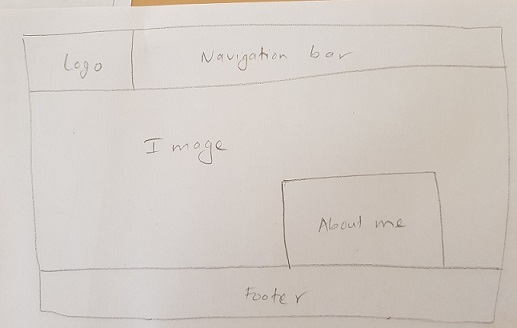 Logo
Navigation bar
Image
About me
Footer